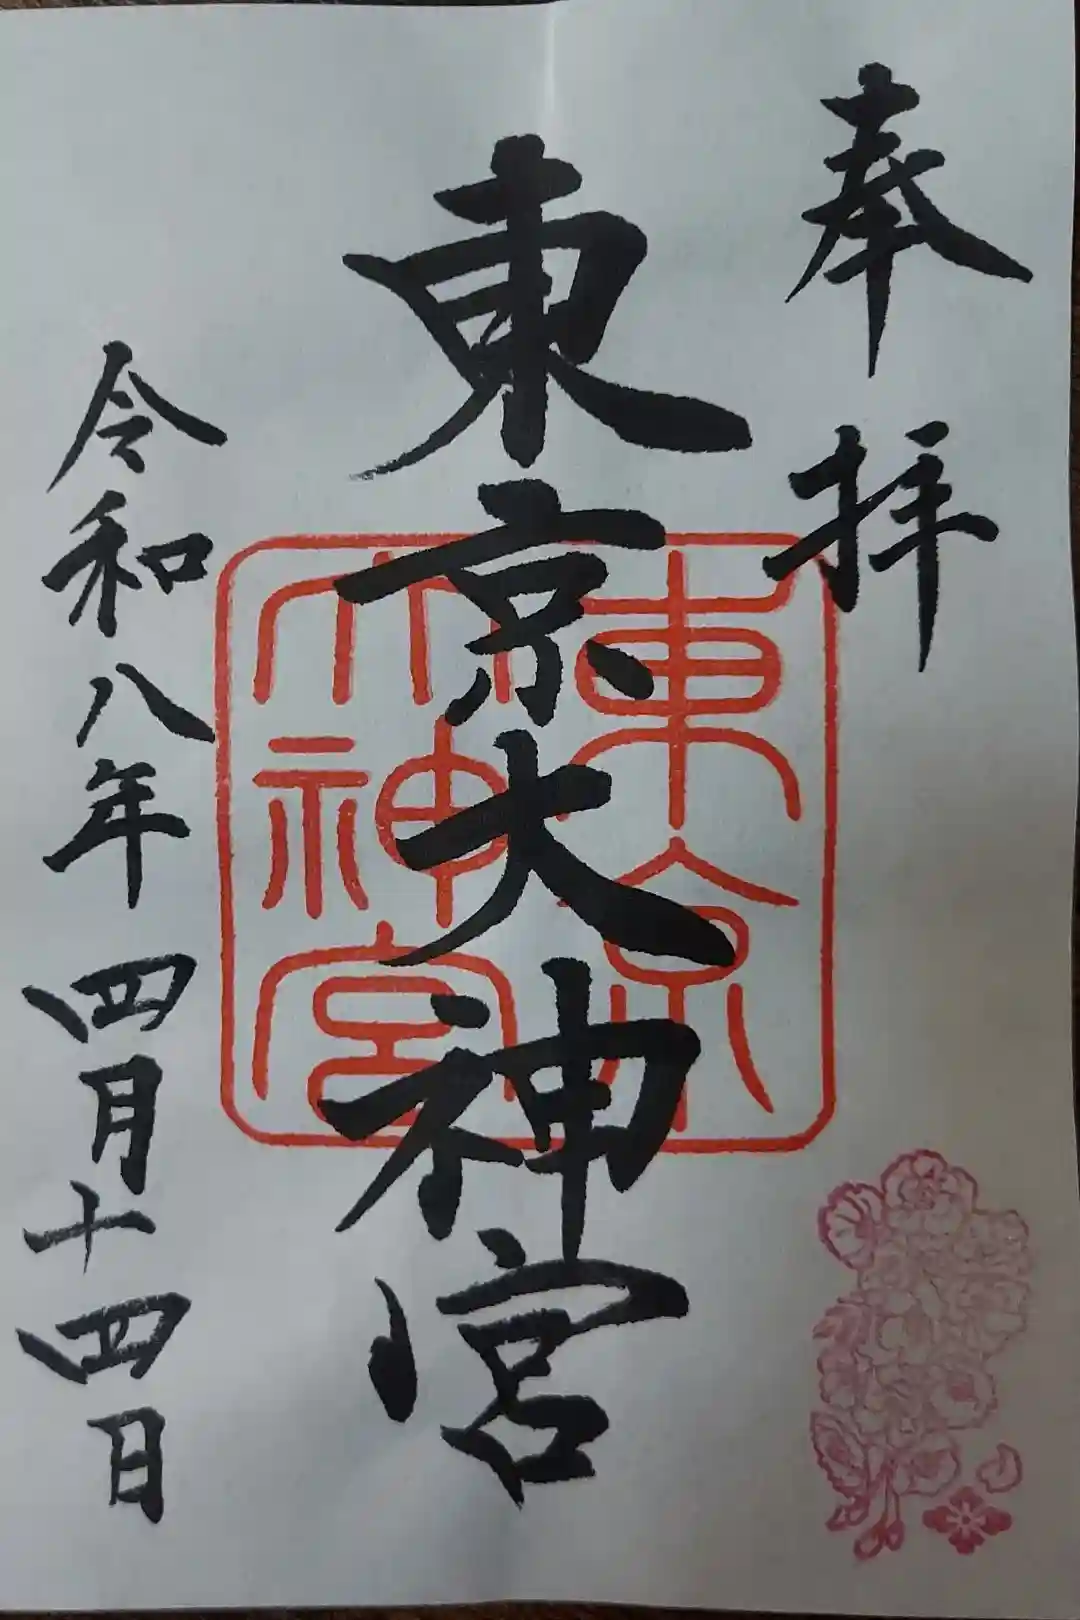 奉拝
東京大神宮
東京
大神宮
令和八年 四月十四日